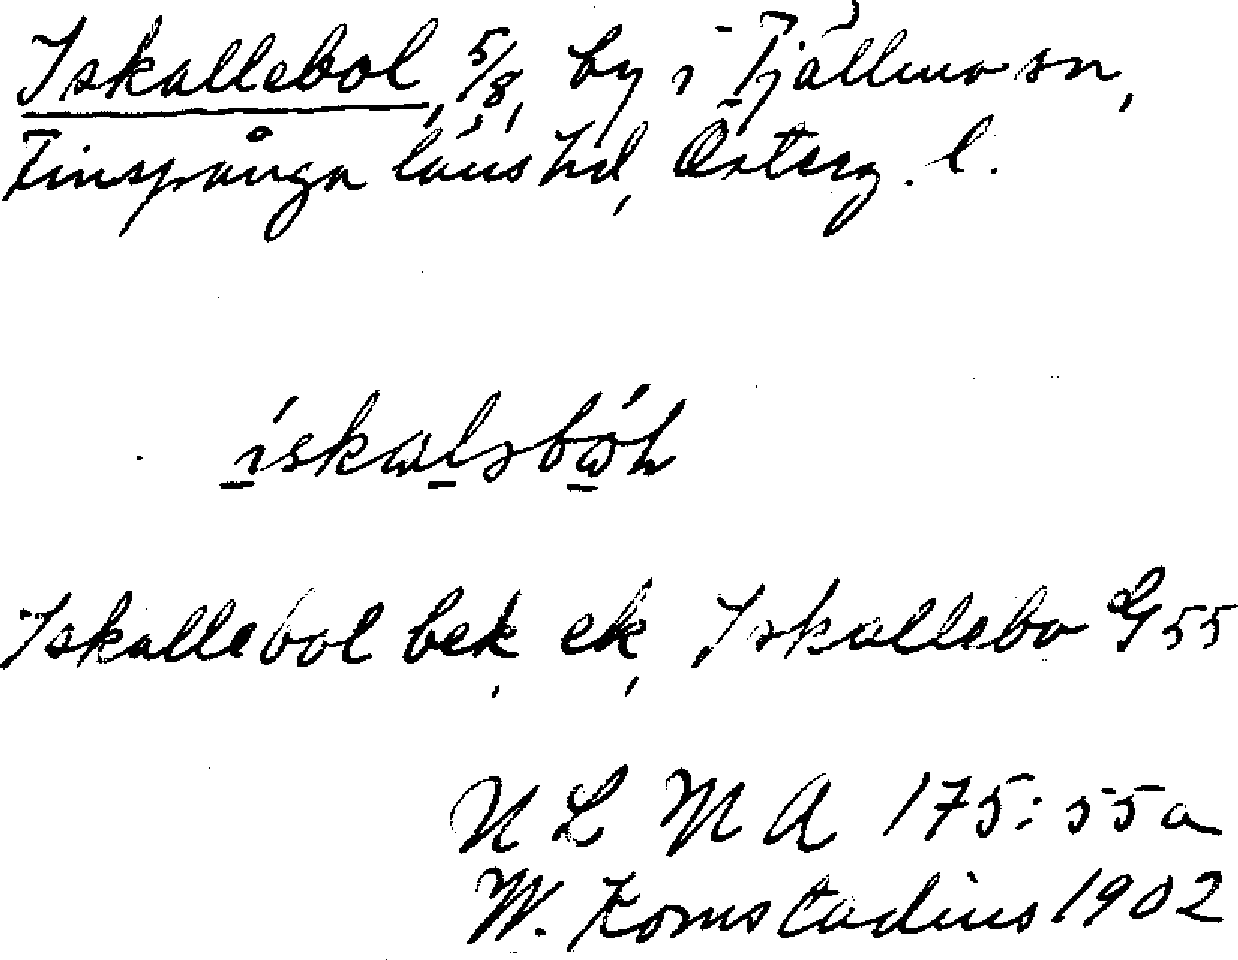 Iskallebol, 5/8, by i Tjällmo sn,
Finspånga läns hd, Österg. l.
ískalsbóh
Iskallebol bek, ek, Iskallebo G 55
ULMA 175:55a
W. Komstadius 1902